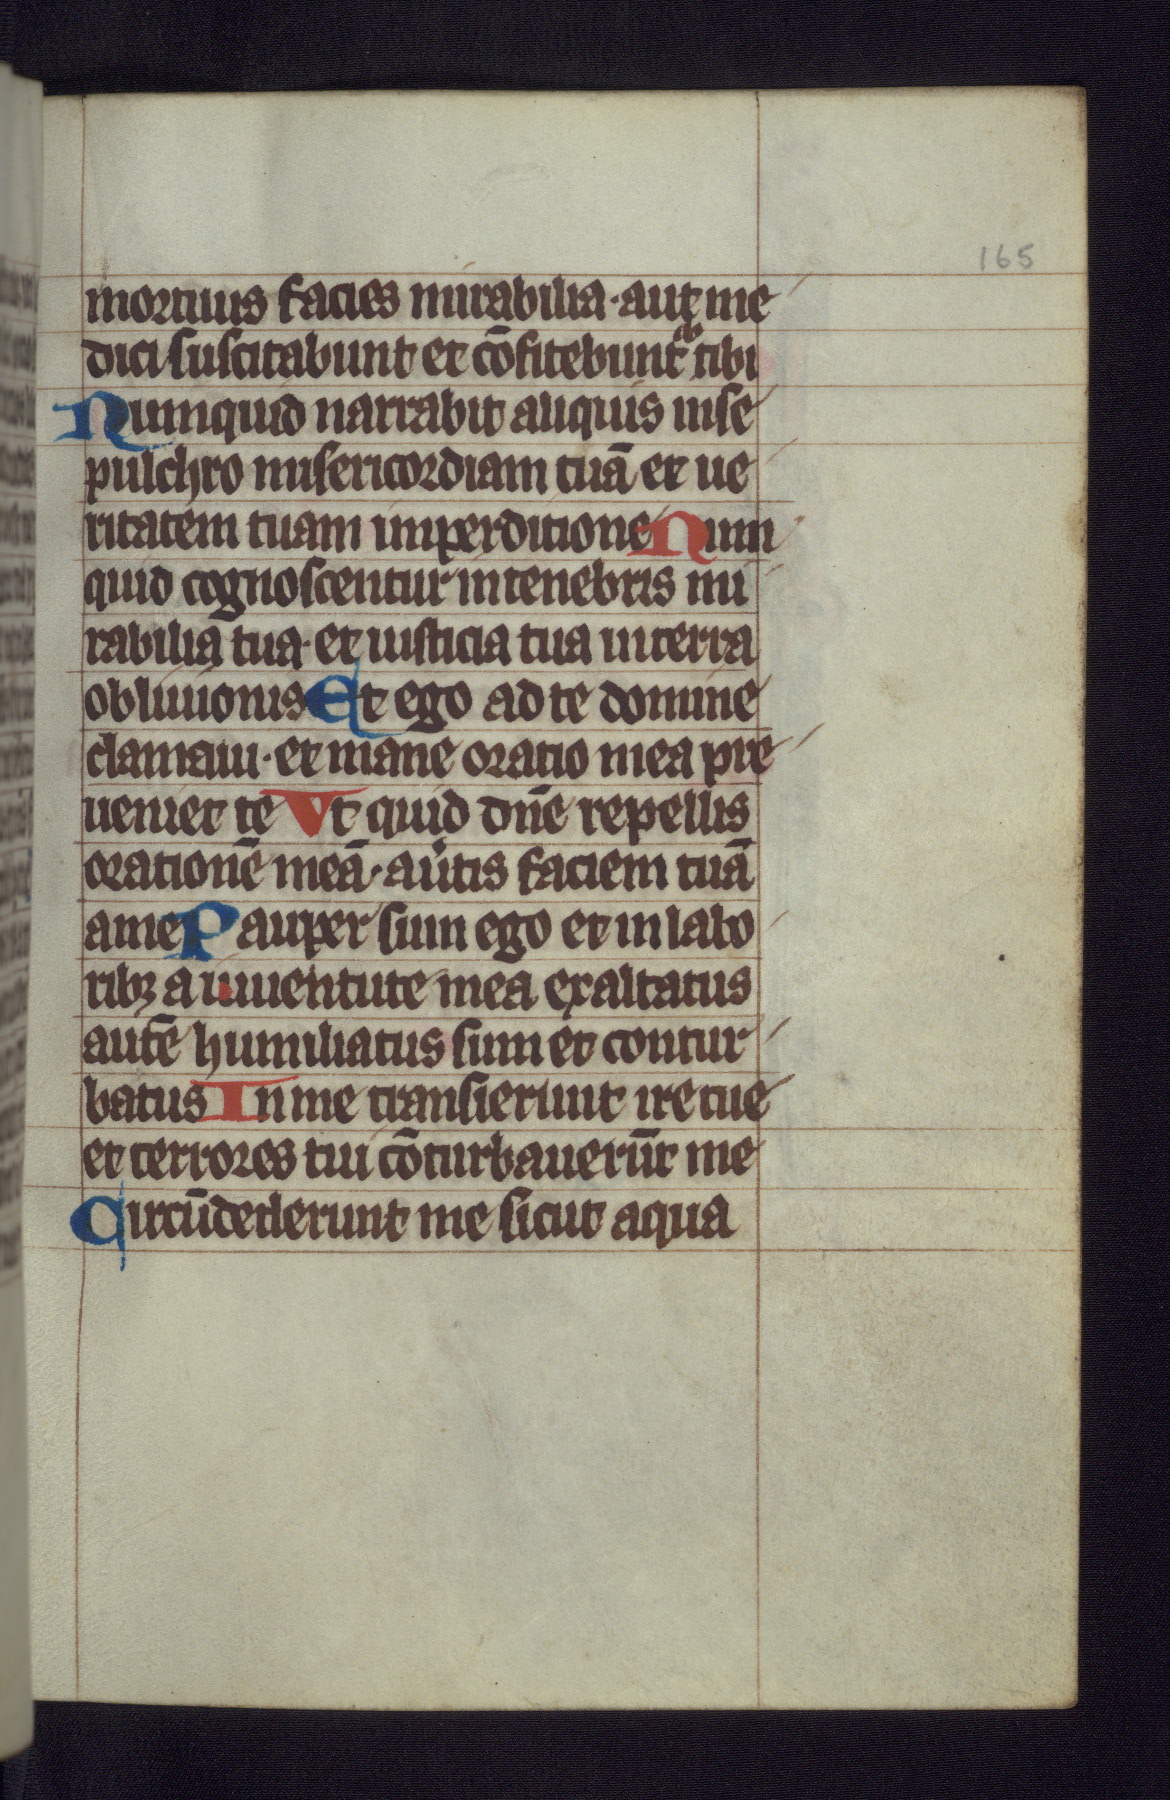 165
mortuis facies mirabilia · aut me
dici suscitabunt et cōfitebunt᷑ tibi
Numquid narrabit aliquis in se
pulchro misericordiam tuā et ue
ritatem tuam in perditione Num
quid cognoscentur in tenebris mi
rabilia tua · et iusticia tua in terra
obliuionis Et ego ad te domine
clamaui · et mane oratio mea pre
ueniet te Vt quid dn̄e repellis
orationē meā · au̾tis faciem tuā
a me Pauper sum ego et in labo
ribꝫ a iuuentute mea exaltatus
autē humiliatus sum et contur
batus In me transierunt ire tue
et terrores tui cōturbauerūt me
Circūdederunt me sicut aqua